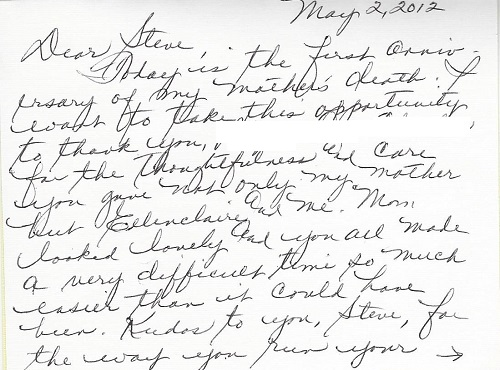 May 2, 2012
Dear Steve,
Today is the first anniv-
ersary of my mother's death. I
want to take this opportunity
to thank you,
for the thoughtfulness and care
you gave not only my mother
but Ellenclaire and me. Mom
looked lovely and you all made
a very difficult time so much
easier than it could have
been. Kudos to you, Steve, for
the way you run your →